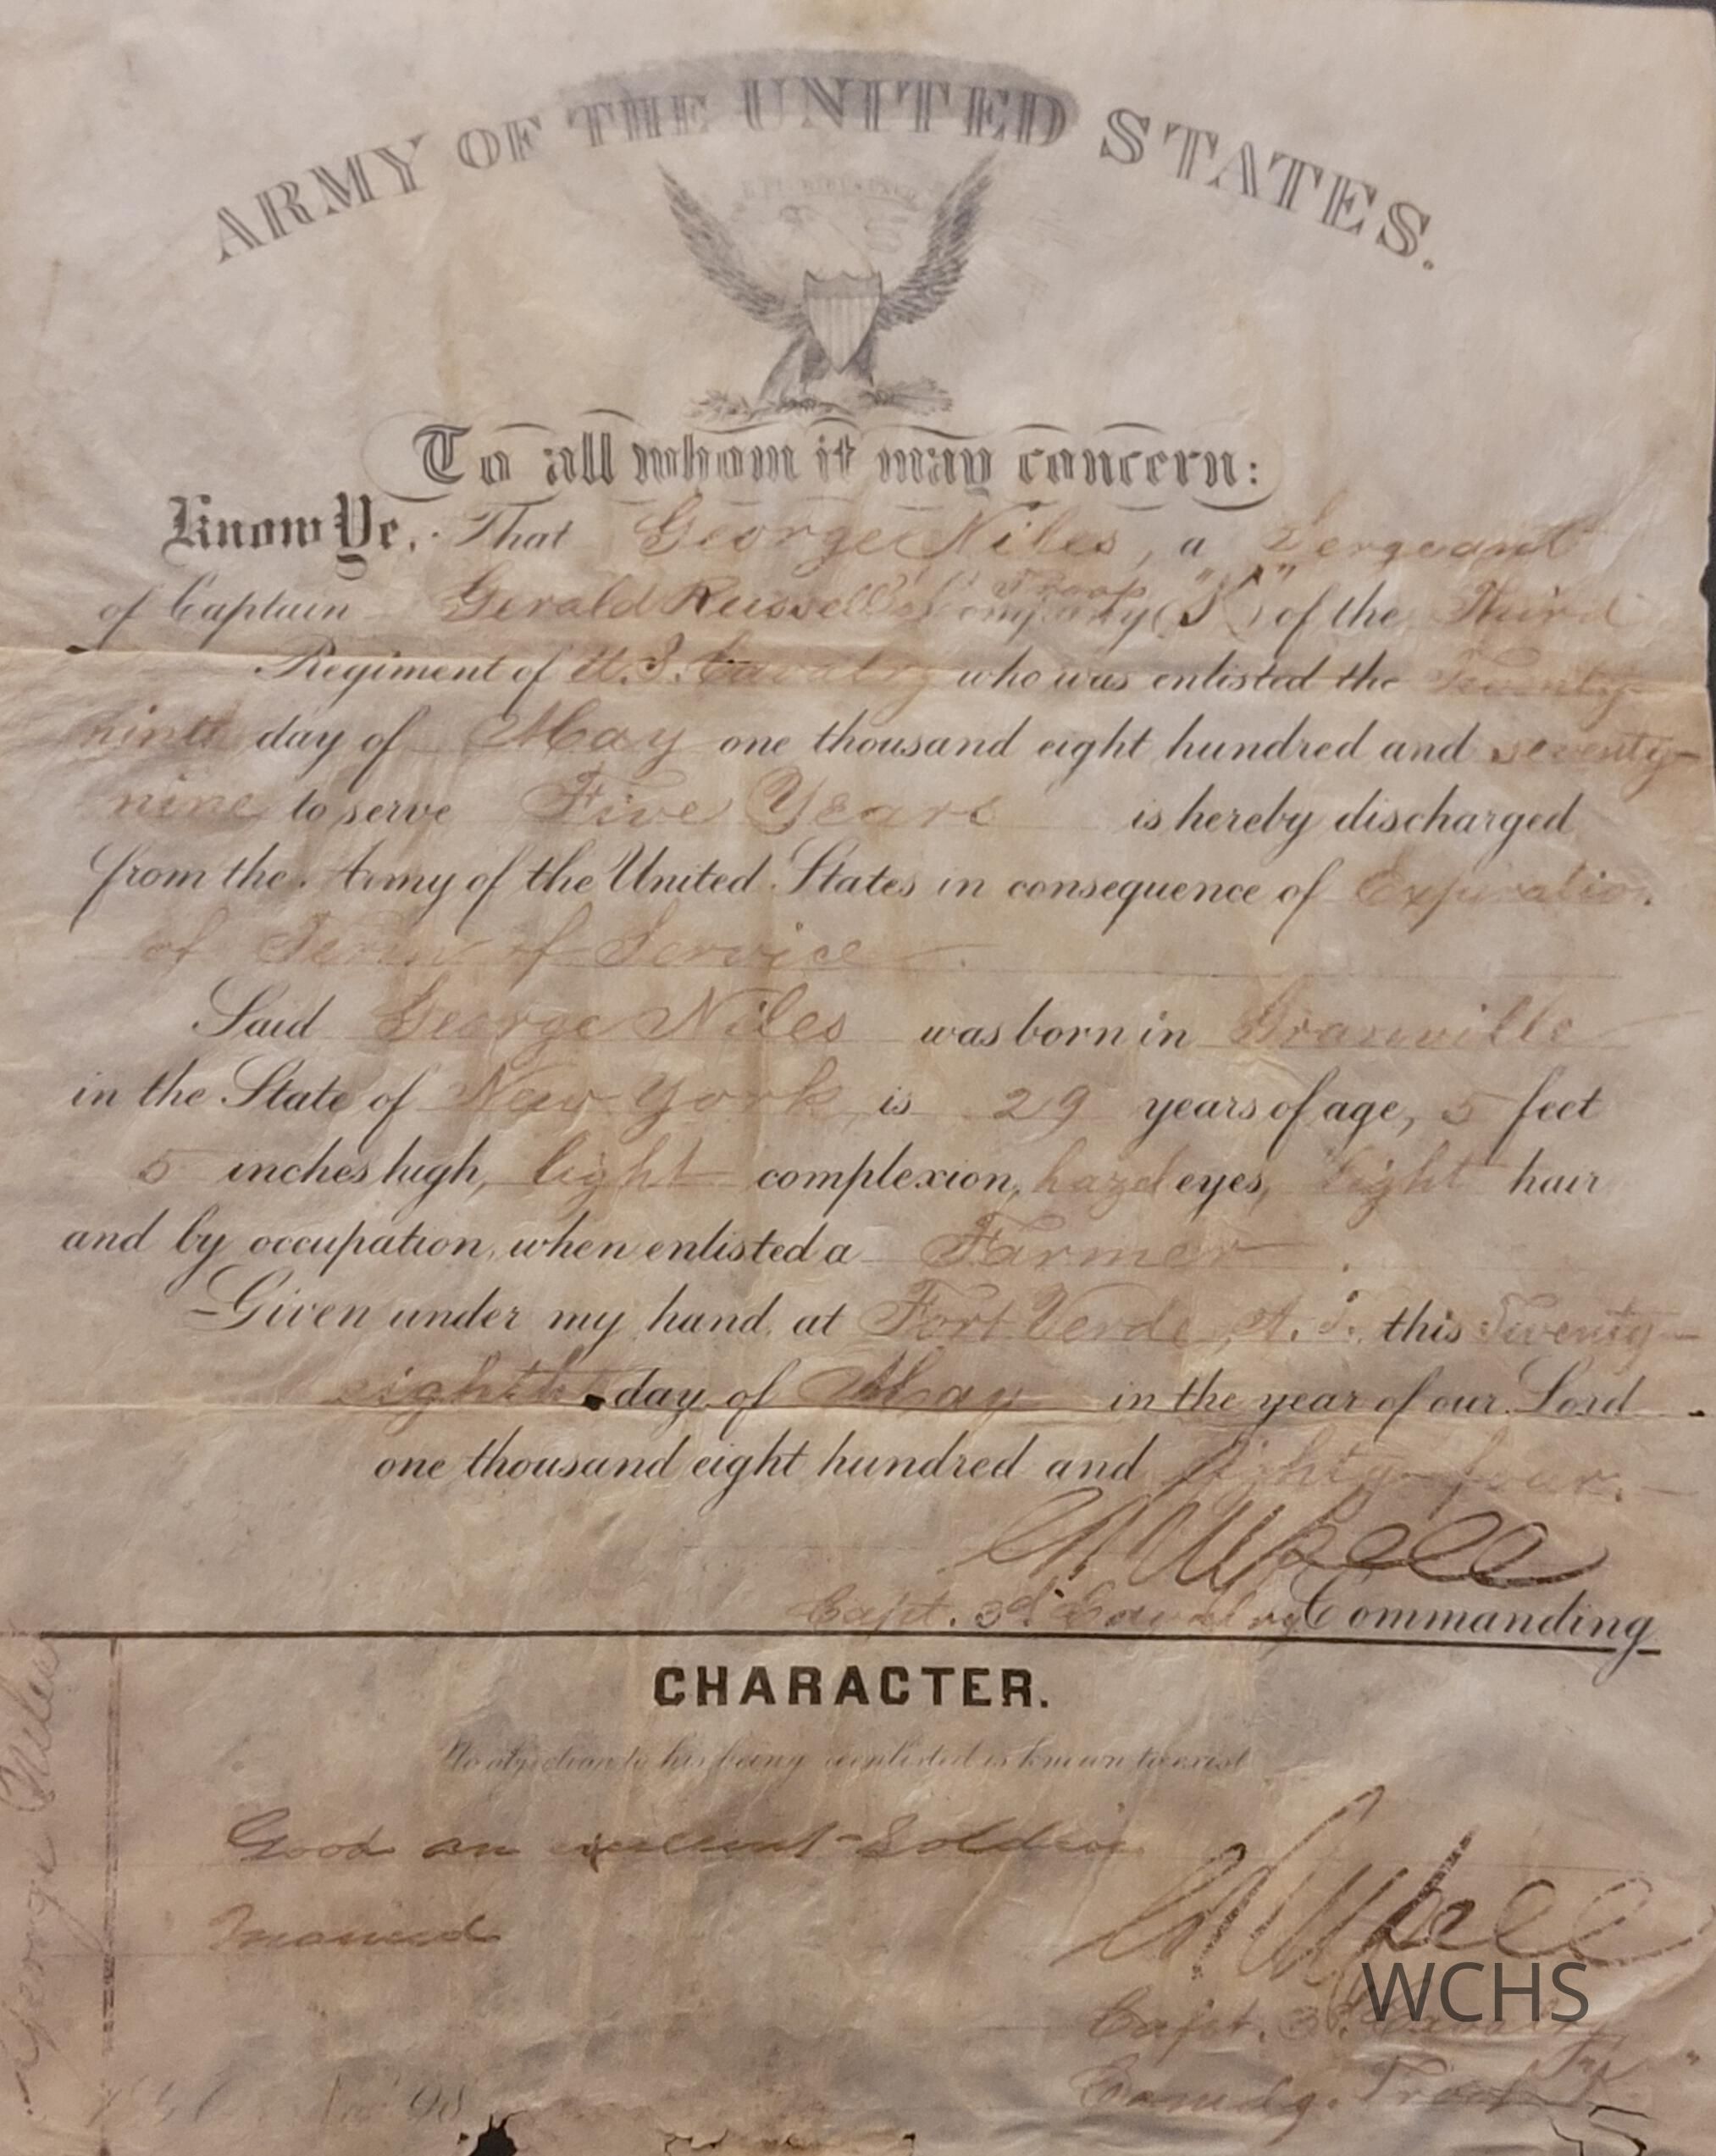 ARMY OF THE UNITED STATES.
E PLURIBUS UNUM
To all whom it may concern:
Know Ye, That George Niles, a Sergeant
Troop "K"
of Captain Gerald Russell's Company (K) of the Third
Regiment of U.S. Cavalry who was enlisted the Twenty-
ninth day of May one thousand eight hundred and seventy-
nine to serve Five Years is hereby discharged
from the Army of the United States in consequence of Expiration
of Term of Service
Said George Niles was born in Granville
in the State of New York is 29 years of age, 5 feet
5 inches high, light complexion, hazel eyes, light hair
and by occupation, when enlisted a Farmer.
Given under my hand at Fort Verde, A.T. this Twenty-
eighth day of May in the year of our Lord
one thousand eight hundred and eighty-four.
Capt. 3d. Cavalry Commanding
CHARACTER.
No objection to his being reenlisted is known to exist
Good an excellent Soldier
Married
George Niles
WCHS
Capt. 3d. Cavalry
Comdg. Troop